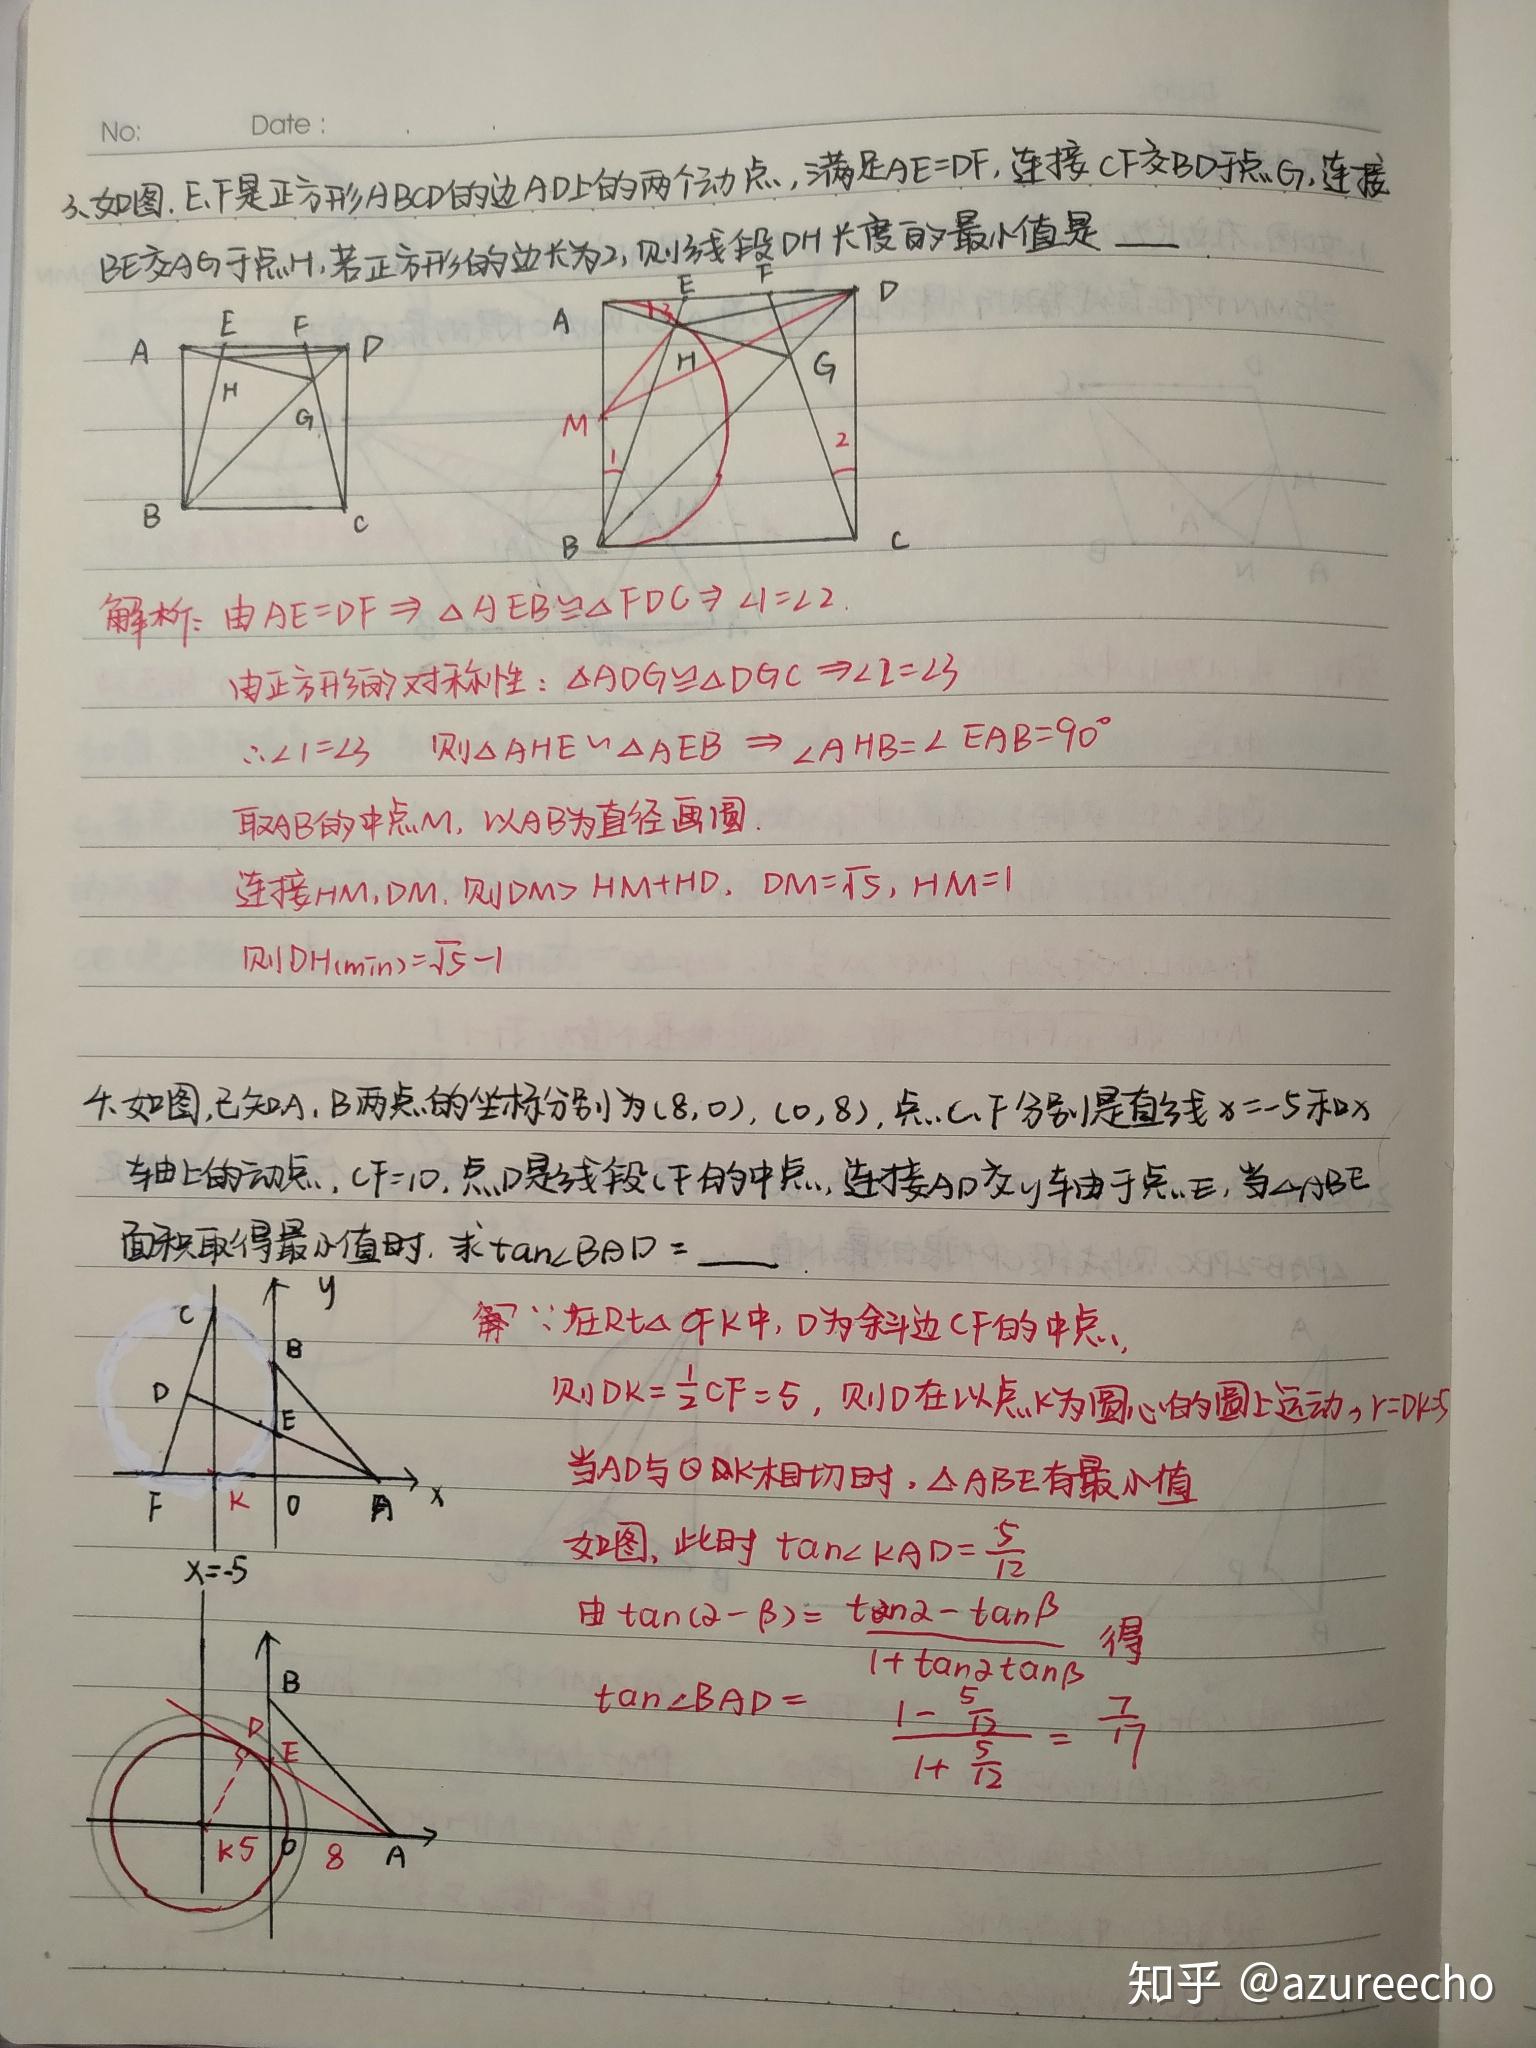 No:    Date :
3、如图，E、F是正方形ABCD的边AD上的两个动点，满足AE=DF，连接CF交BD于点G，连接
BE交AG于点H，若正方形的边长为2，则线段DH长度的最小值是 ___
A E F D
H
G
B C
A E F D
13
H G
M
1 2
B C
解析：由AE=DF⇒△AEB≌△FDC⇒∠1=∠2.
由正方形的对称性：△ADG≌△DGC⇒∠2=∠3
∴∠1=∠3 则△AHE∽△AEB ⇒ ∠AHB=∠EAB=90°
取AB的中点M，以AB为直径画圆.
连接HM，DM，则DM> HM+HD. DM=√5，HM=1
则DH(min)=√5-1
4、如图，已知A、B两点的坐标分别为(8,0)，(0,8)，点C、F分别是直线x=-5和x
轴上的动点，CF=10，点D是线段CF的中点，连接AD交y轴于点E，当△ABE
面积取得最小值时，求tan∠BAD = ___
C y
B
D
E
F K O A x
x=-5
解∵在Rt△CFK中，D为斜边CF的中点，
则DK=1/2CF=5，则D在以点K为圆心的圆上运动，r=DK=5
当AD与⊙DK相切时，△ABE有最小值
如图，此时 tan∠KAD=5/12
由 tan(α-β)= (tanα-tanβ)/(1+tanαtanβ) 得
tan∠BAD= (1-5/12)/(1+5/12) = 7/17
B
D E
K 5 O 8 A
知乎 @azureecho